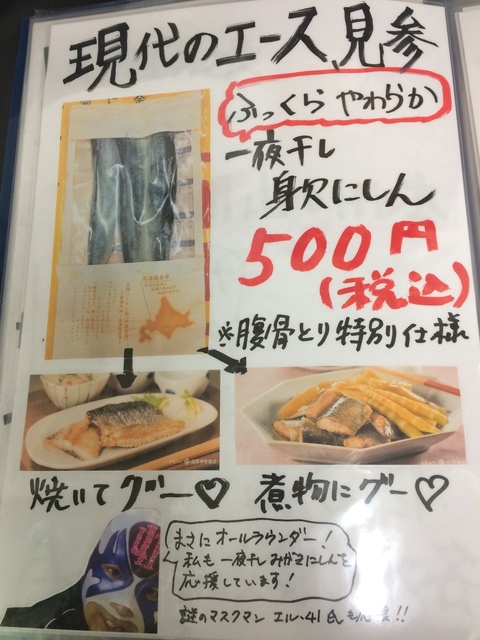 現代のエース、見参
ふっくら やわらか
一夜干し
身欠にしん
500円
(税込)
※腹骨とり特別仕様
焼いてグー♡
煮物にグー♡
まさにオールラウンダー!
私も一夜干しみがきにしんを
応援しています!
謎のマスクマン エル・41氏も応援!!